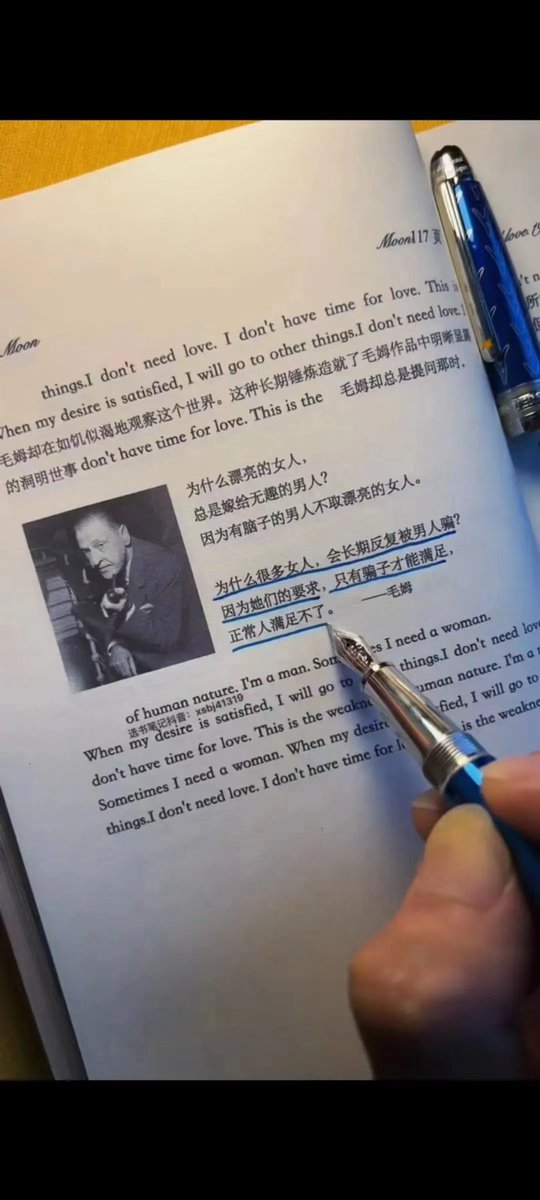 Moon117 页
Moon
things.I don't need love. I don't have time for love. This is
When my desire is satisfied, I will go to other things.I don't need love.I
毛姆却在如饥似渴地观察这个世界。这种长期锤炼造就了毛姆作品中明晰显
的洞明世事 don't have time for love. This is the 毛姆却总是提问那时.
为什么漂亮的女人，
总是嫁给无趣的男人？
因为有脑子的男人不取漂亮的女人。
为什么很多女人，会长期反复被男人骗？
因为她们的要求，只有骗子才能满足，
正常人满足不了。 ——毛姆
of human nature. I'm a man. Som es I need a woman.
选书笔记抖音：xsbj41319
When my desire is satisfied, I will go to things.I don't need love
don't have time for love. This is the weakn uman nature. I'm a
Sometimes I need a woman. When my desir fied, I will go to
things.I don't need love. I don't have time for l is the weakne
love.